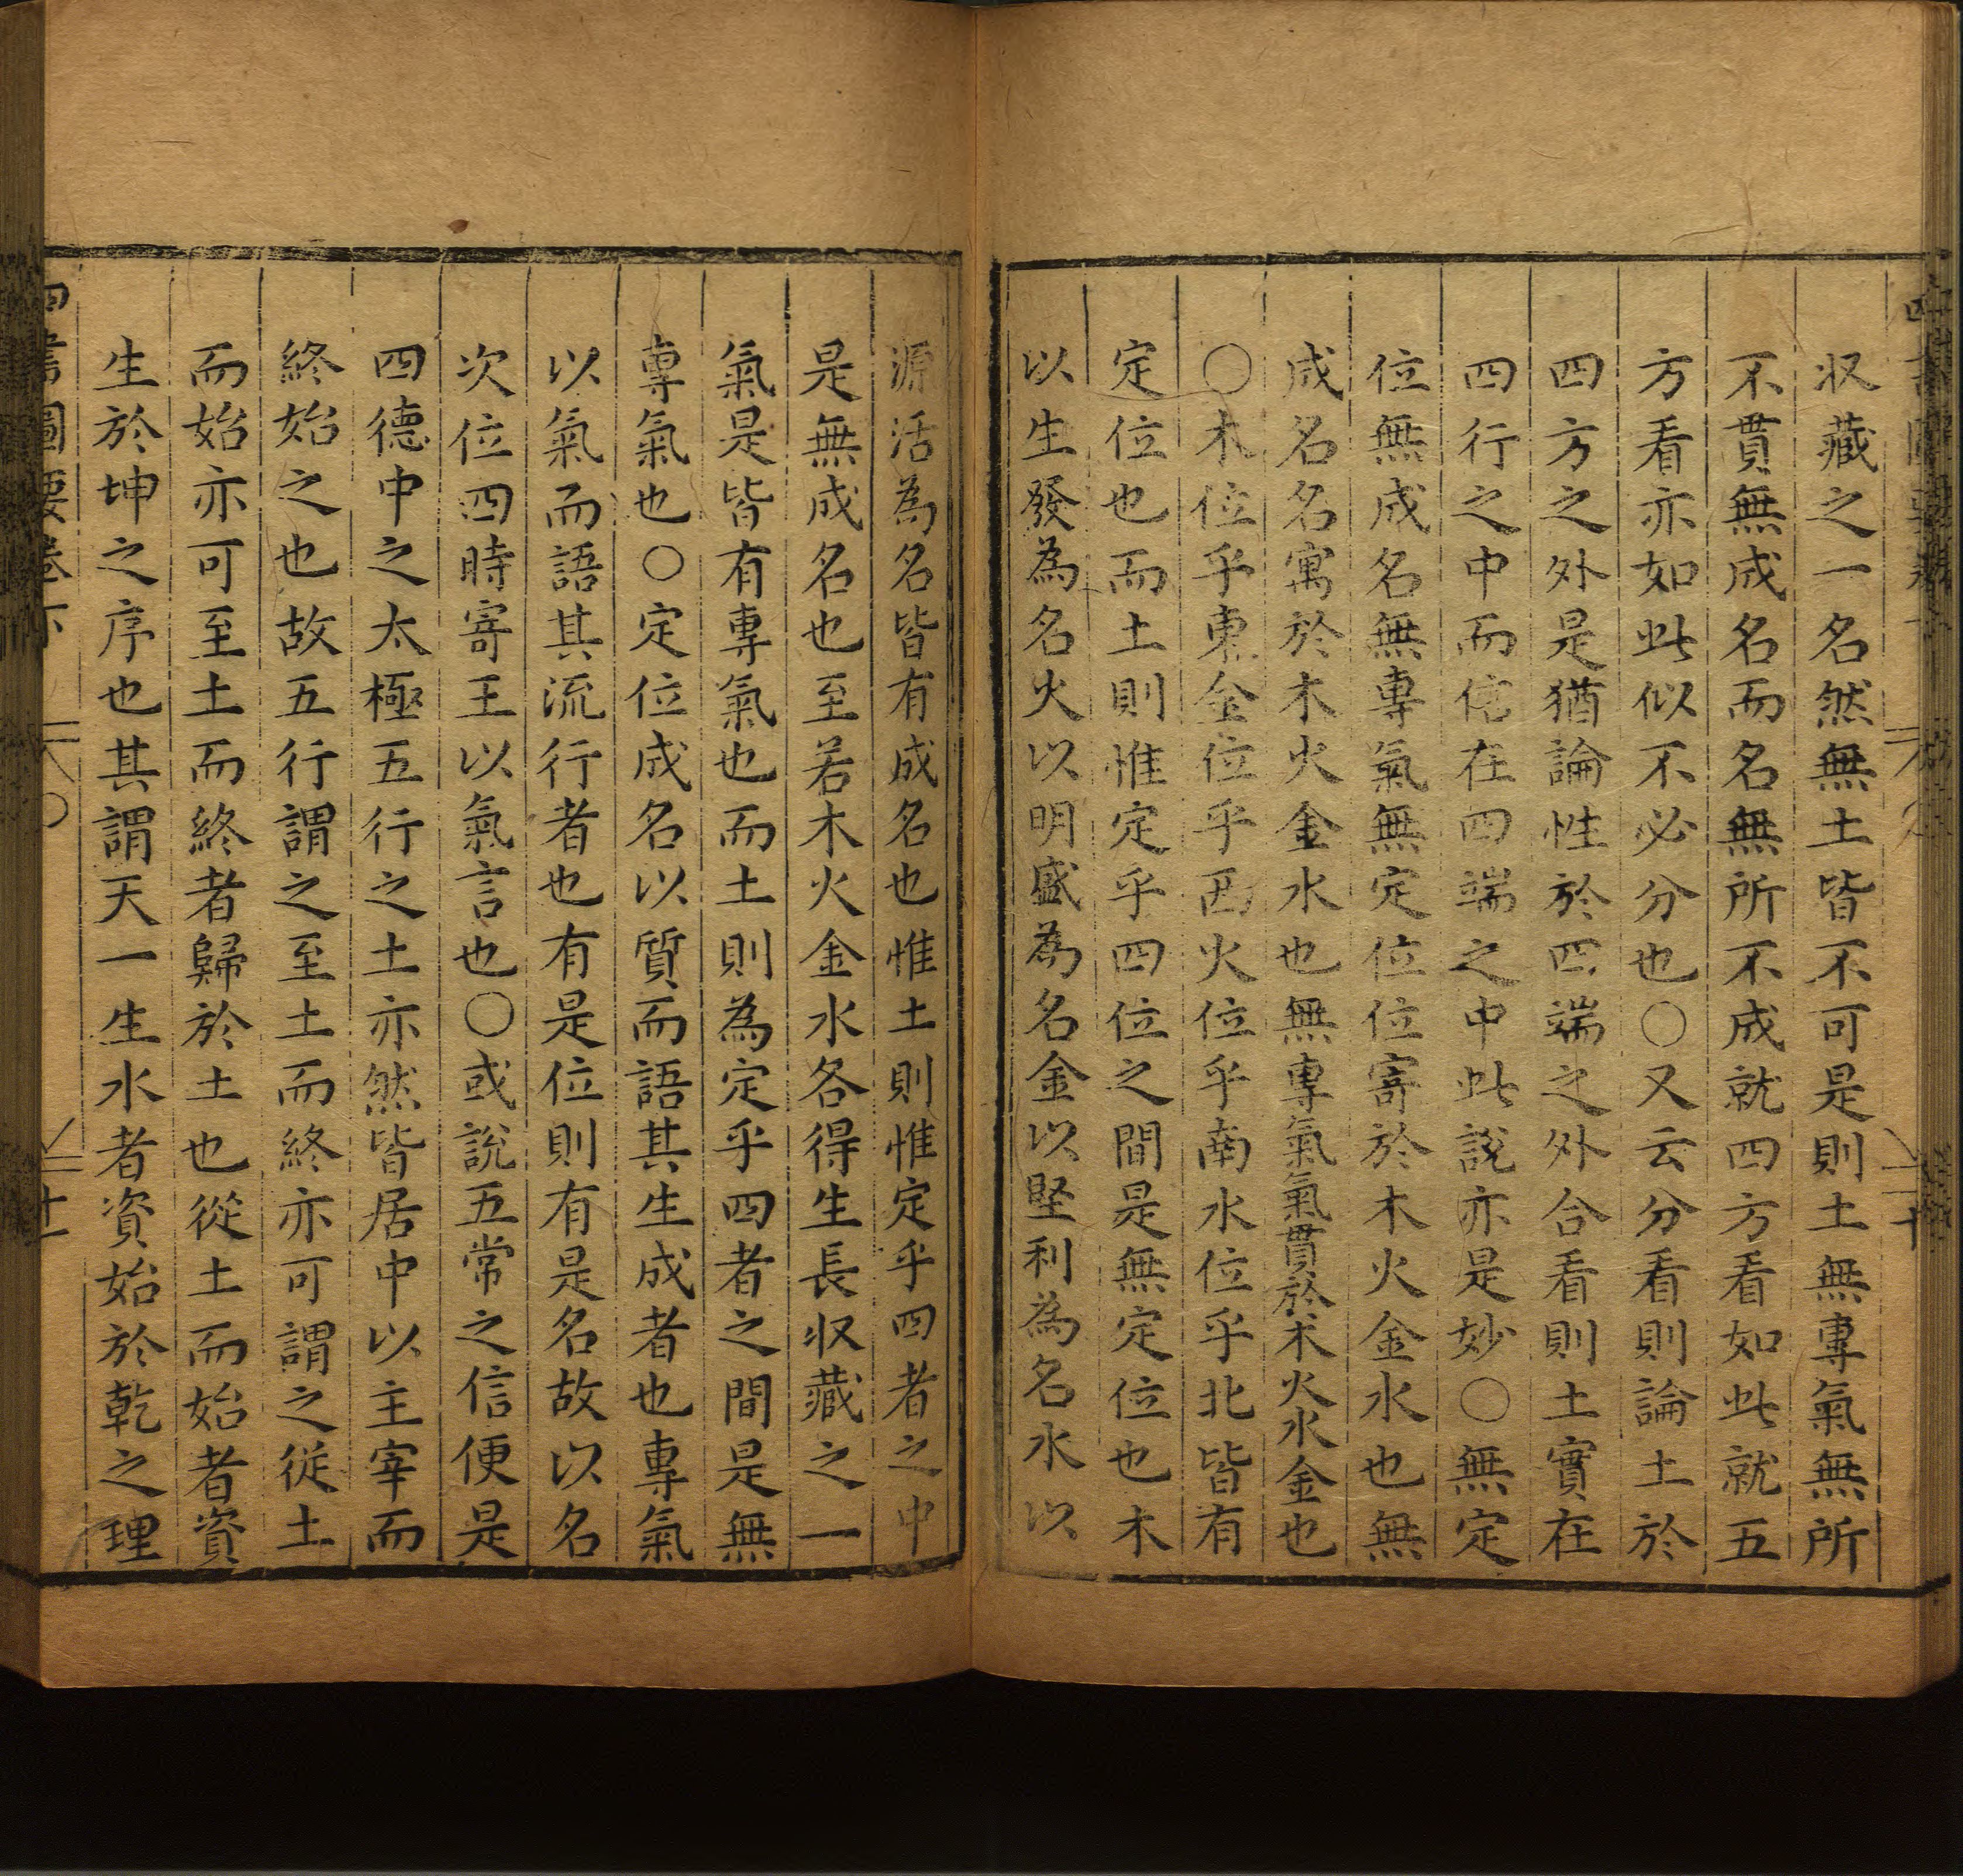 収藏之一名然無土皆不可是則土無專氣無所
不貫無成名而名無所不成就四方看如此就五
方看亦如此似不必分也○又云分看則論土於
四方之外是猶論性於四端之外合看則土實在
四行之中而信在四端之中此說亦是妙○無定
位無成名無專氣無定位位寄於木火金水也無
成名名寓於木火金水也無專氣氣貫於木火水金也
○木位乎東金位乎西火位乎南水位乎北皆有
定位也而土則惟定乎四位之間是無定位也木
以生發為名火以明盛為名金以堅利為名水以
源活為名皆有成名也惟土則惟定乎四者之中
是無成名也至若木火金水各得生長収藏之一
氣是皆有專氣也而土則為定乎四者之間是無
專氣也○定位成名以質而語其生成者也專氣
以氣而語其流行者也有是位則有是名故以名
次位四時寄王以氣言也○或說五常之信便是
四德中之太極五行之土亦然皆居中以主宰而
終始之也故五行謂之至土而終亦可謂之從土
而始亦可至土而終者歸於土也從土而始者資
生於坤之序也其謂天一生水者資始於乾之理
四書圖要卷下 廿一